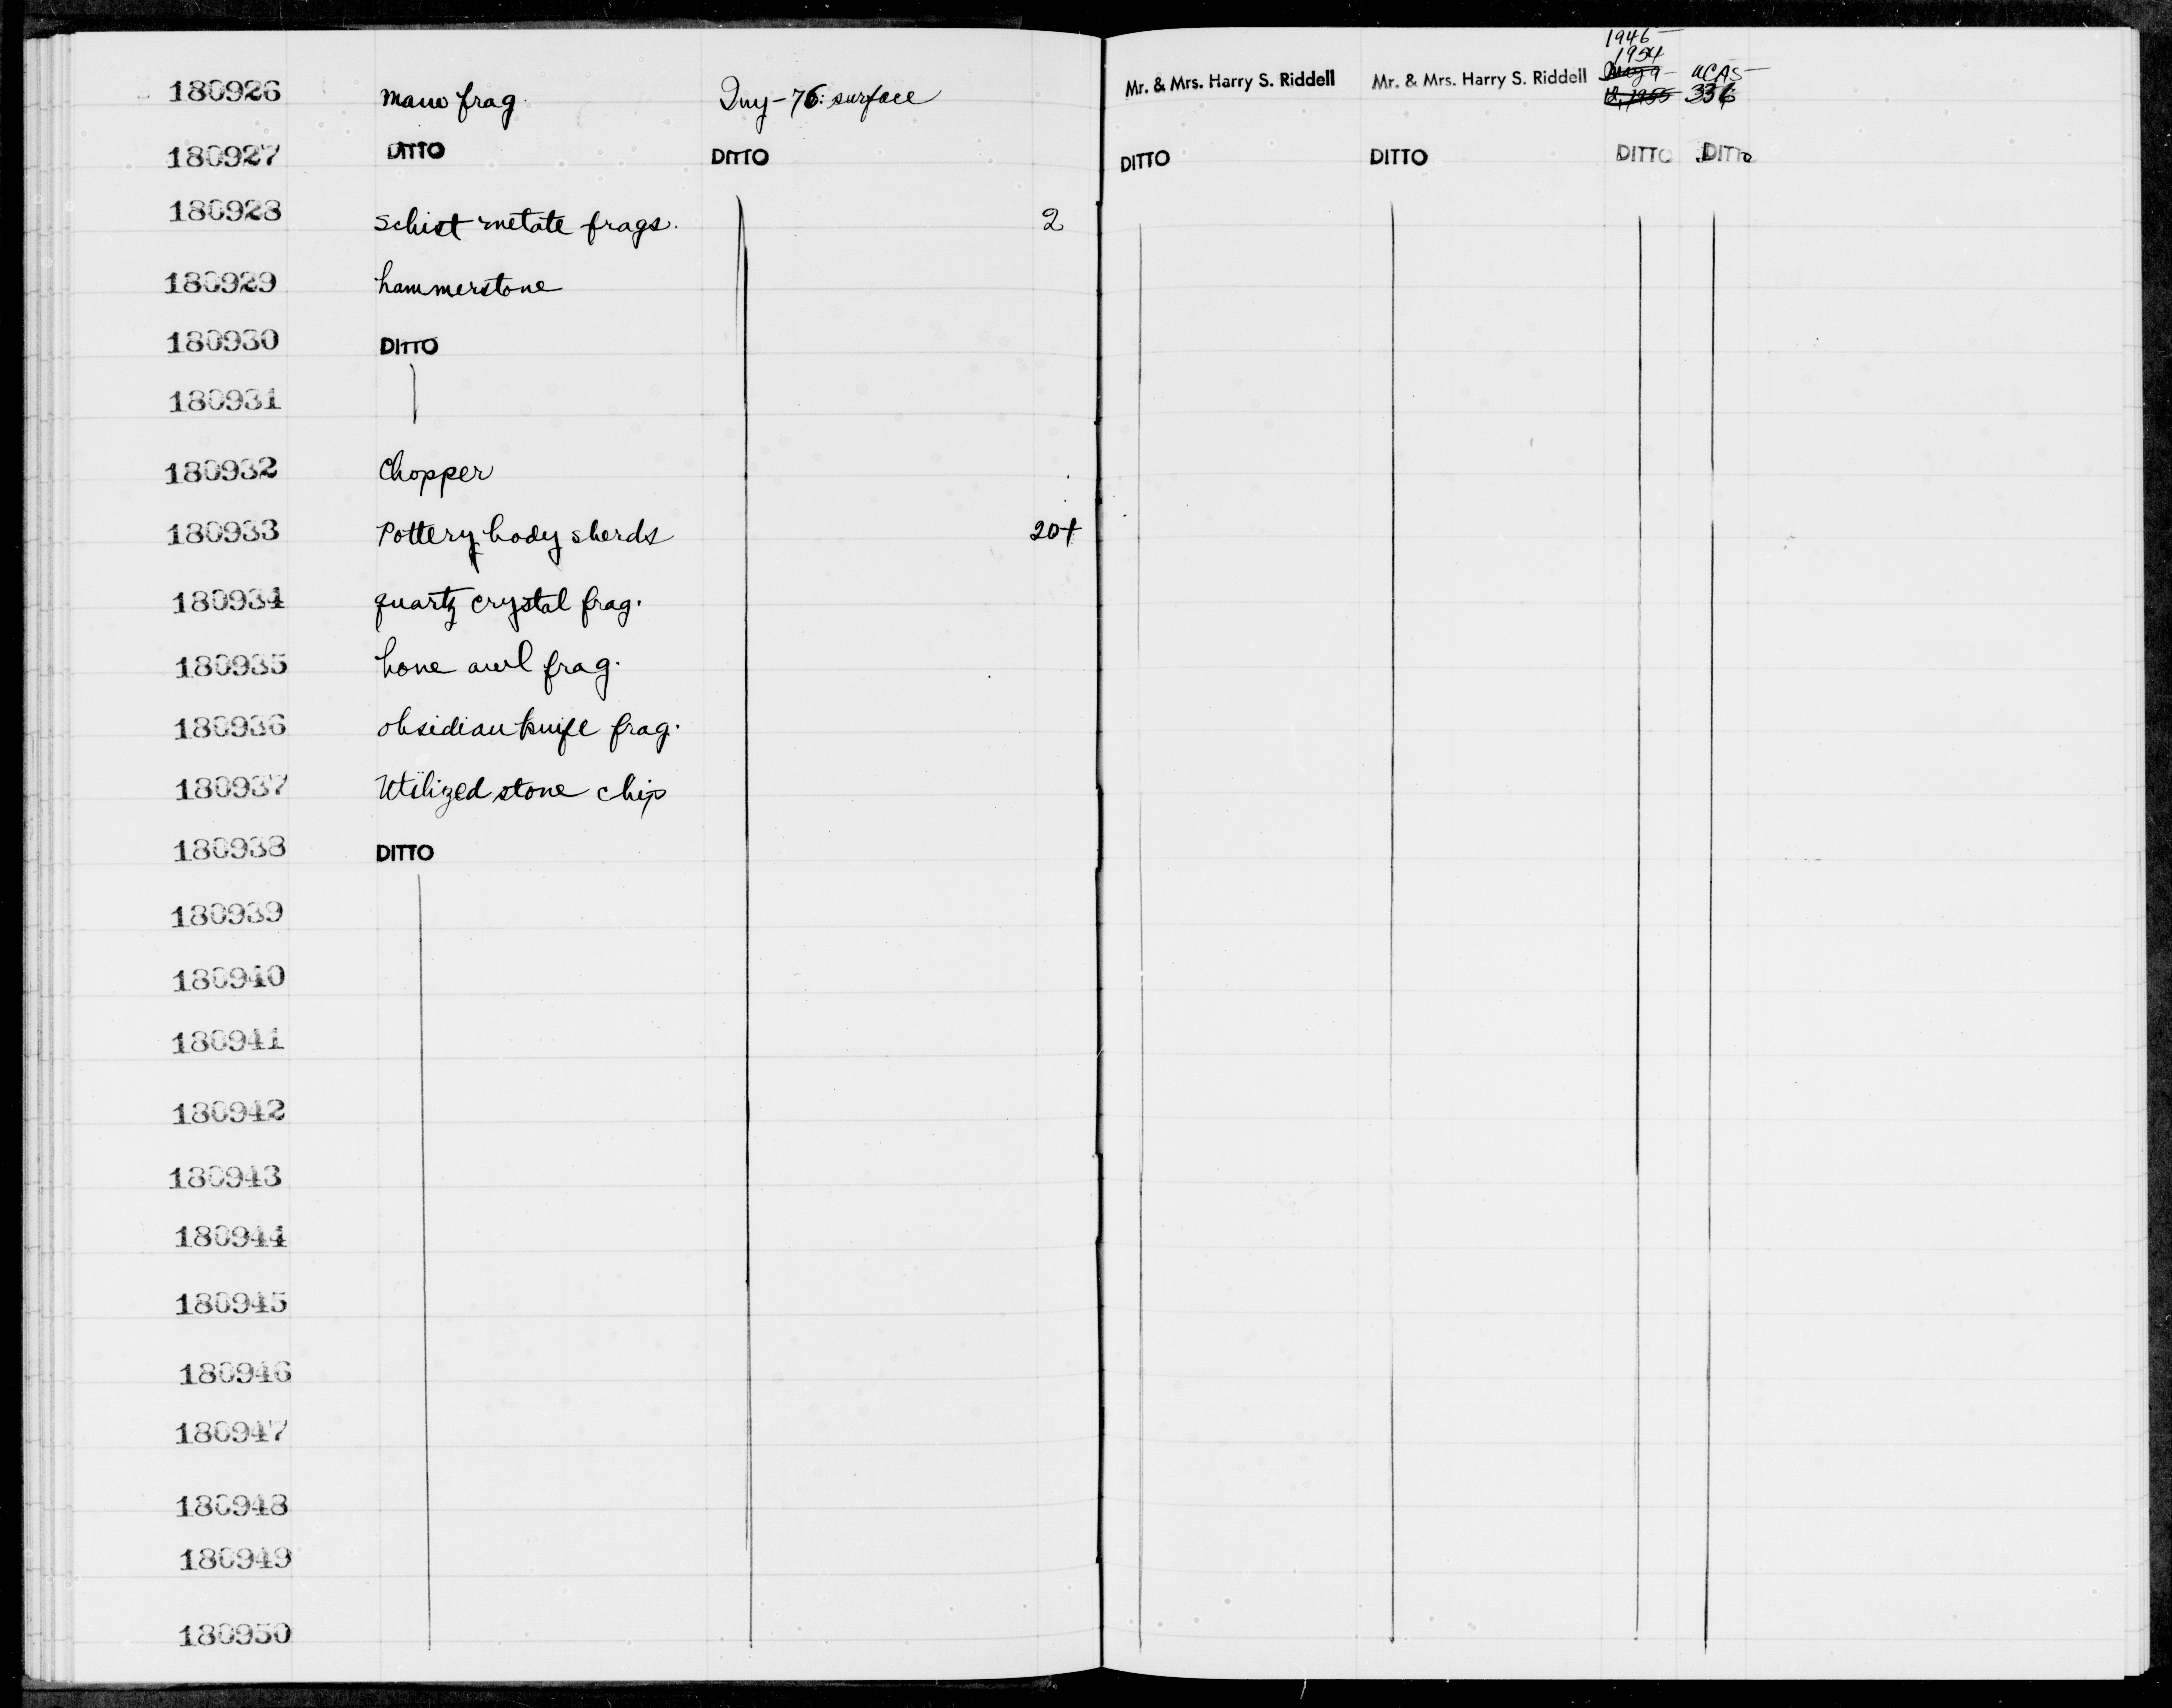 1946-
1954
180926 mano frag. Iny-76: surface Mr. & Mrs. Harry S. Riddell Mr. & Mrs. Harry S. Riddell 12, 1955 UCAS-336
180927 DITTO DITTO DITTO DITTO DITTO DITTO
180928 schist metate frags. 2
180929 hammerstone
180930 DITTO
180931
180932 Chopper
180933 Pottery body sherds 20+
180934 quartz crystal frag.
180935 bone awl frag.
180936 obsidian knife frag.
180937 Utilized stone chip
180938 DITTO
180939
180940
180941
180942
180943
180944
180945
180946
180947
180948
180949
180950